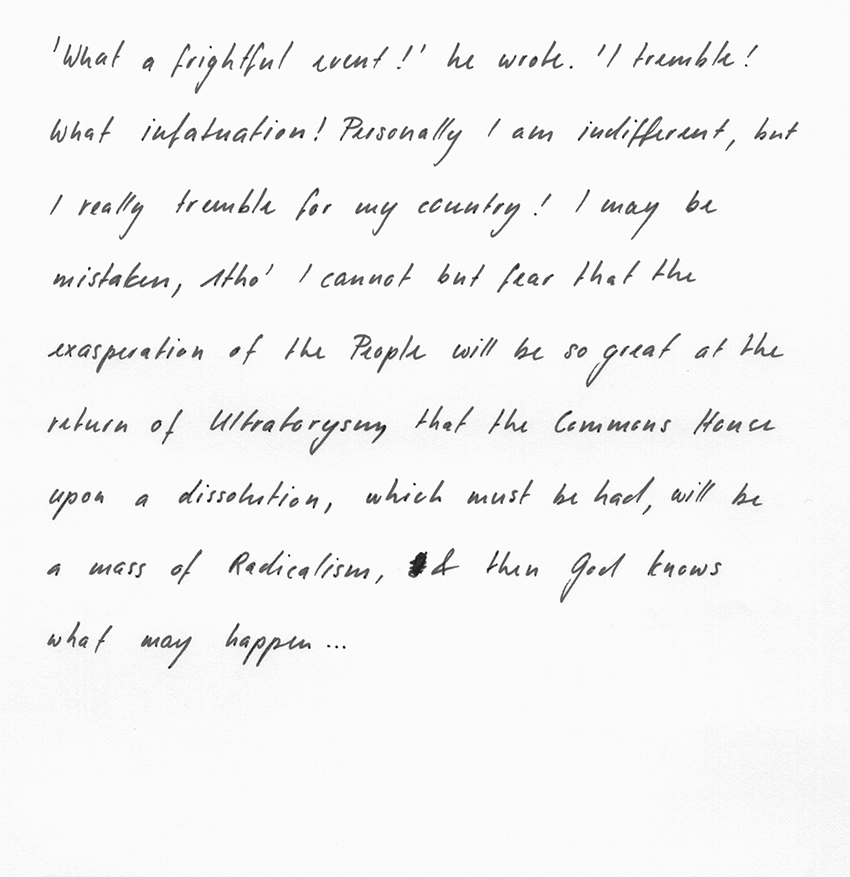 'What a frightful event!' he wrote. 'I tremble!
What infatuation! Personally I am indifferent, but
I really tremble for my country! I may be
mistaken, Atho' I cannot but fear that the
exasperation of the People will be so great at the
return of Ultratorysm that the Commons House
upon a dissolution, which must be had, will be
a mass of Radicalism, & then God knows
what may happen...